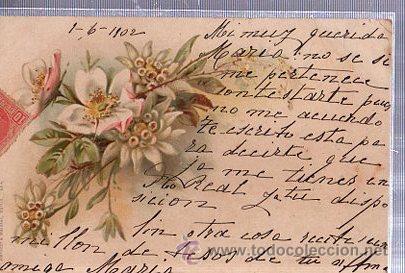 1-6-1902
Mi muy querida
Maria: no se si
me pertenece
contestarte pues
no me acuerdo
te escrito esta pa
ra decirte que
ya me tienes en
Real y a tu dispo
sicion
Sin otra cosa
millon de besos de tu
amiga Maria
www.todocoleccion.net